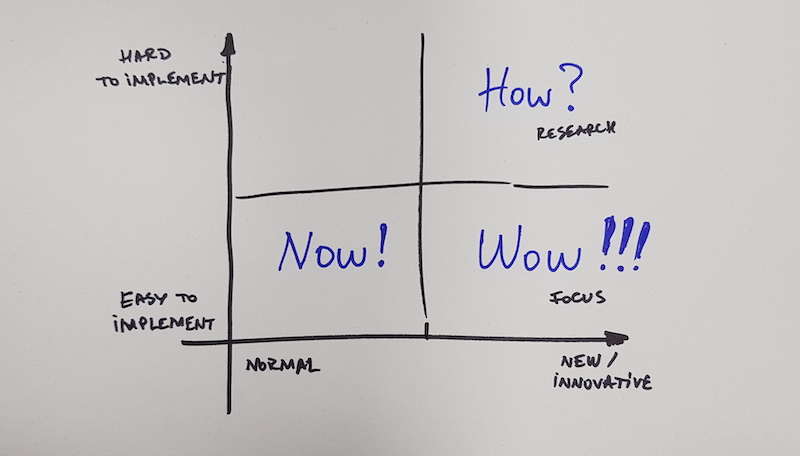 HARD
TO IMPLEMENT
How?
RESEARCH
Now!
Wow!!!
FOCUS
EASY TO
IMPLEMENT
NORMAL
NEW/
INNOVATIVE